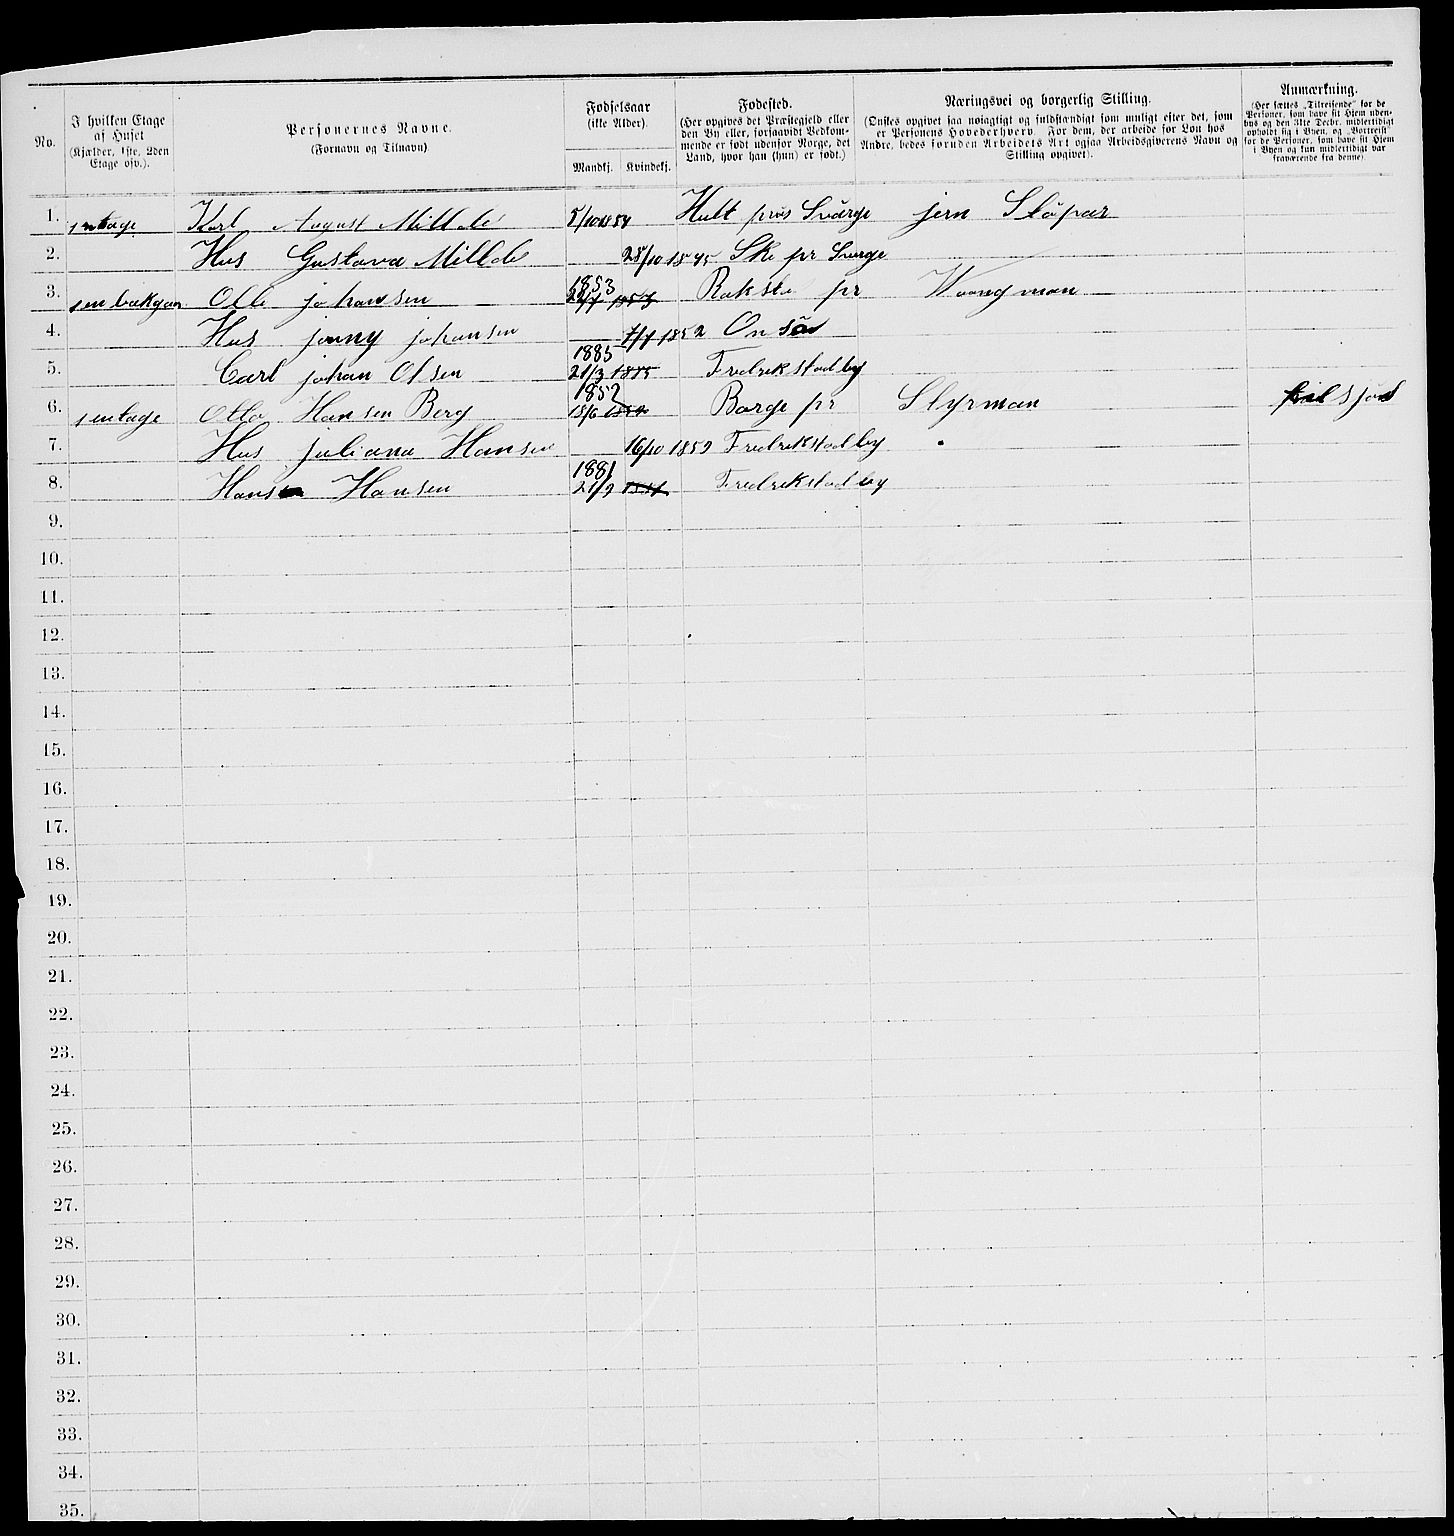 No.
I hvilken Etage af Huset (Kjælder, 1ste, 2den Etage osv.).
Personernes Navne. (Fornavn og Tilnavn)
Fødselsaar (ikke Alder). Mandkj. Kvindekj.
Fødested. (Her opgives det Præstegjeld eller den By eller, forsaavidt Vedkommende er født udenfor Norge, det Land, hvor han (hun) er født.)
Næringsvei og borgerlig Stilling. (Ønskes opgivet saa nøiagtigt og fuldstændigt som muligt efter det, som er Personens Hovederhverv. For dem, der arbeide for Løn hos Andre, bedes foruden Arbeidets Art ogsaa Arbeidsgiverens Navn og Stilling opgivet).
Anmærkning. (Her sættes „Tilreisende" for de Personer, som have sit Hjem udenbys og den 31te Decbr. midlertidigt opholdt sig i Byen, og „Bortreist" for de Personer, som have sit Hjem i Byen og kun midlertidigt var fraværende fra denne).
1. 1 entage Karl August Millde 5/10 1854 Hult präs Svärge jern Stöpar
2. Hus Gustava Millde 28/10 1845 Ske pr Svärge
3. 1 en bakgan Olle johansen 1853 1853 Rakste pr Woongman
4. Hus jenny johansen 1/1 1852 Onsö
5. Carl johan Olsen 1885 21/3 1885 Fredrikstad by
6. 1 entage Otto Hansen Berg 1852 15/6 Borge pr Styrman til sjös
7. Hus juliana Hansen 16/10 1859 Fredrikstad by
8. Hans Hansen 1881 21/9 Fredrikstad by
9.
10.
11.
12.
13.
14.
15.
16.
17.
18.
19.
20.
21.
22.
23.
24.
25.
26.
27.
28.
29.
30.
31.
32.
33.
34.
35.